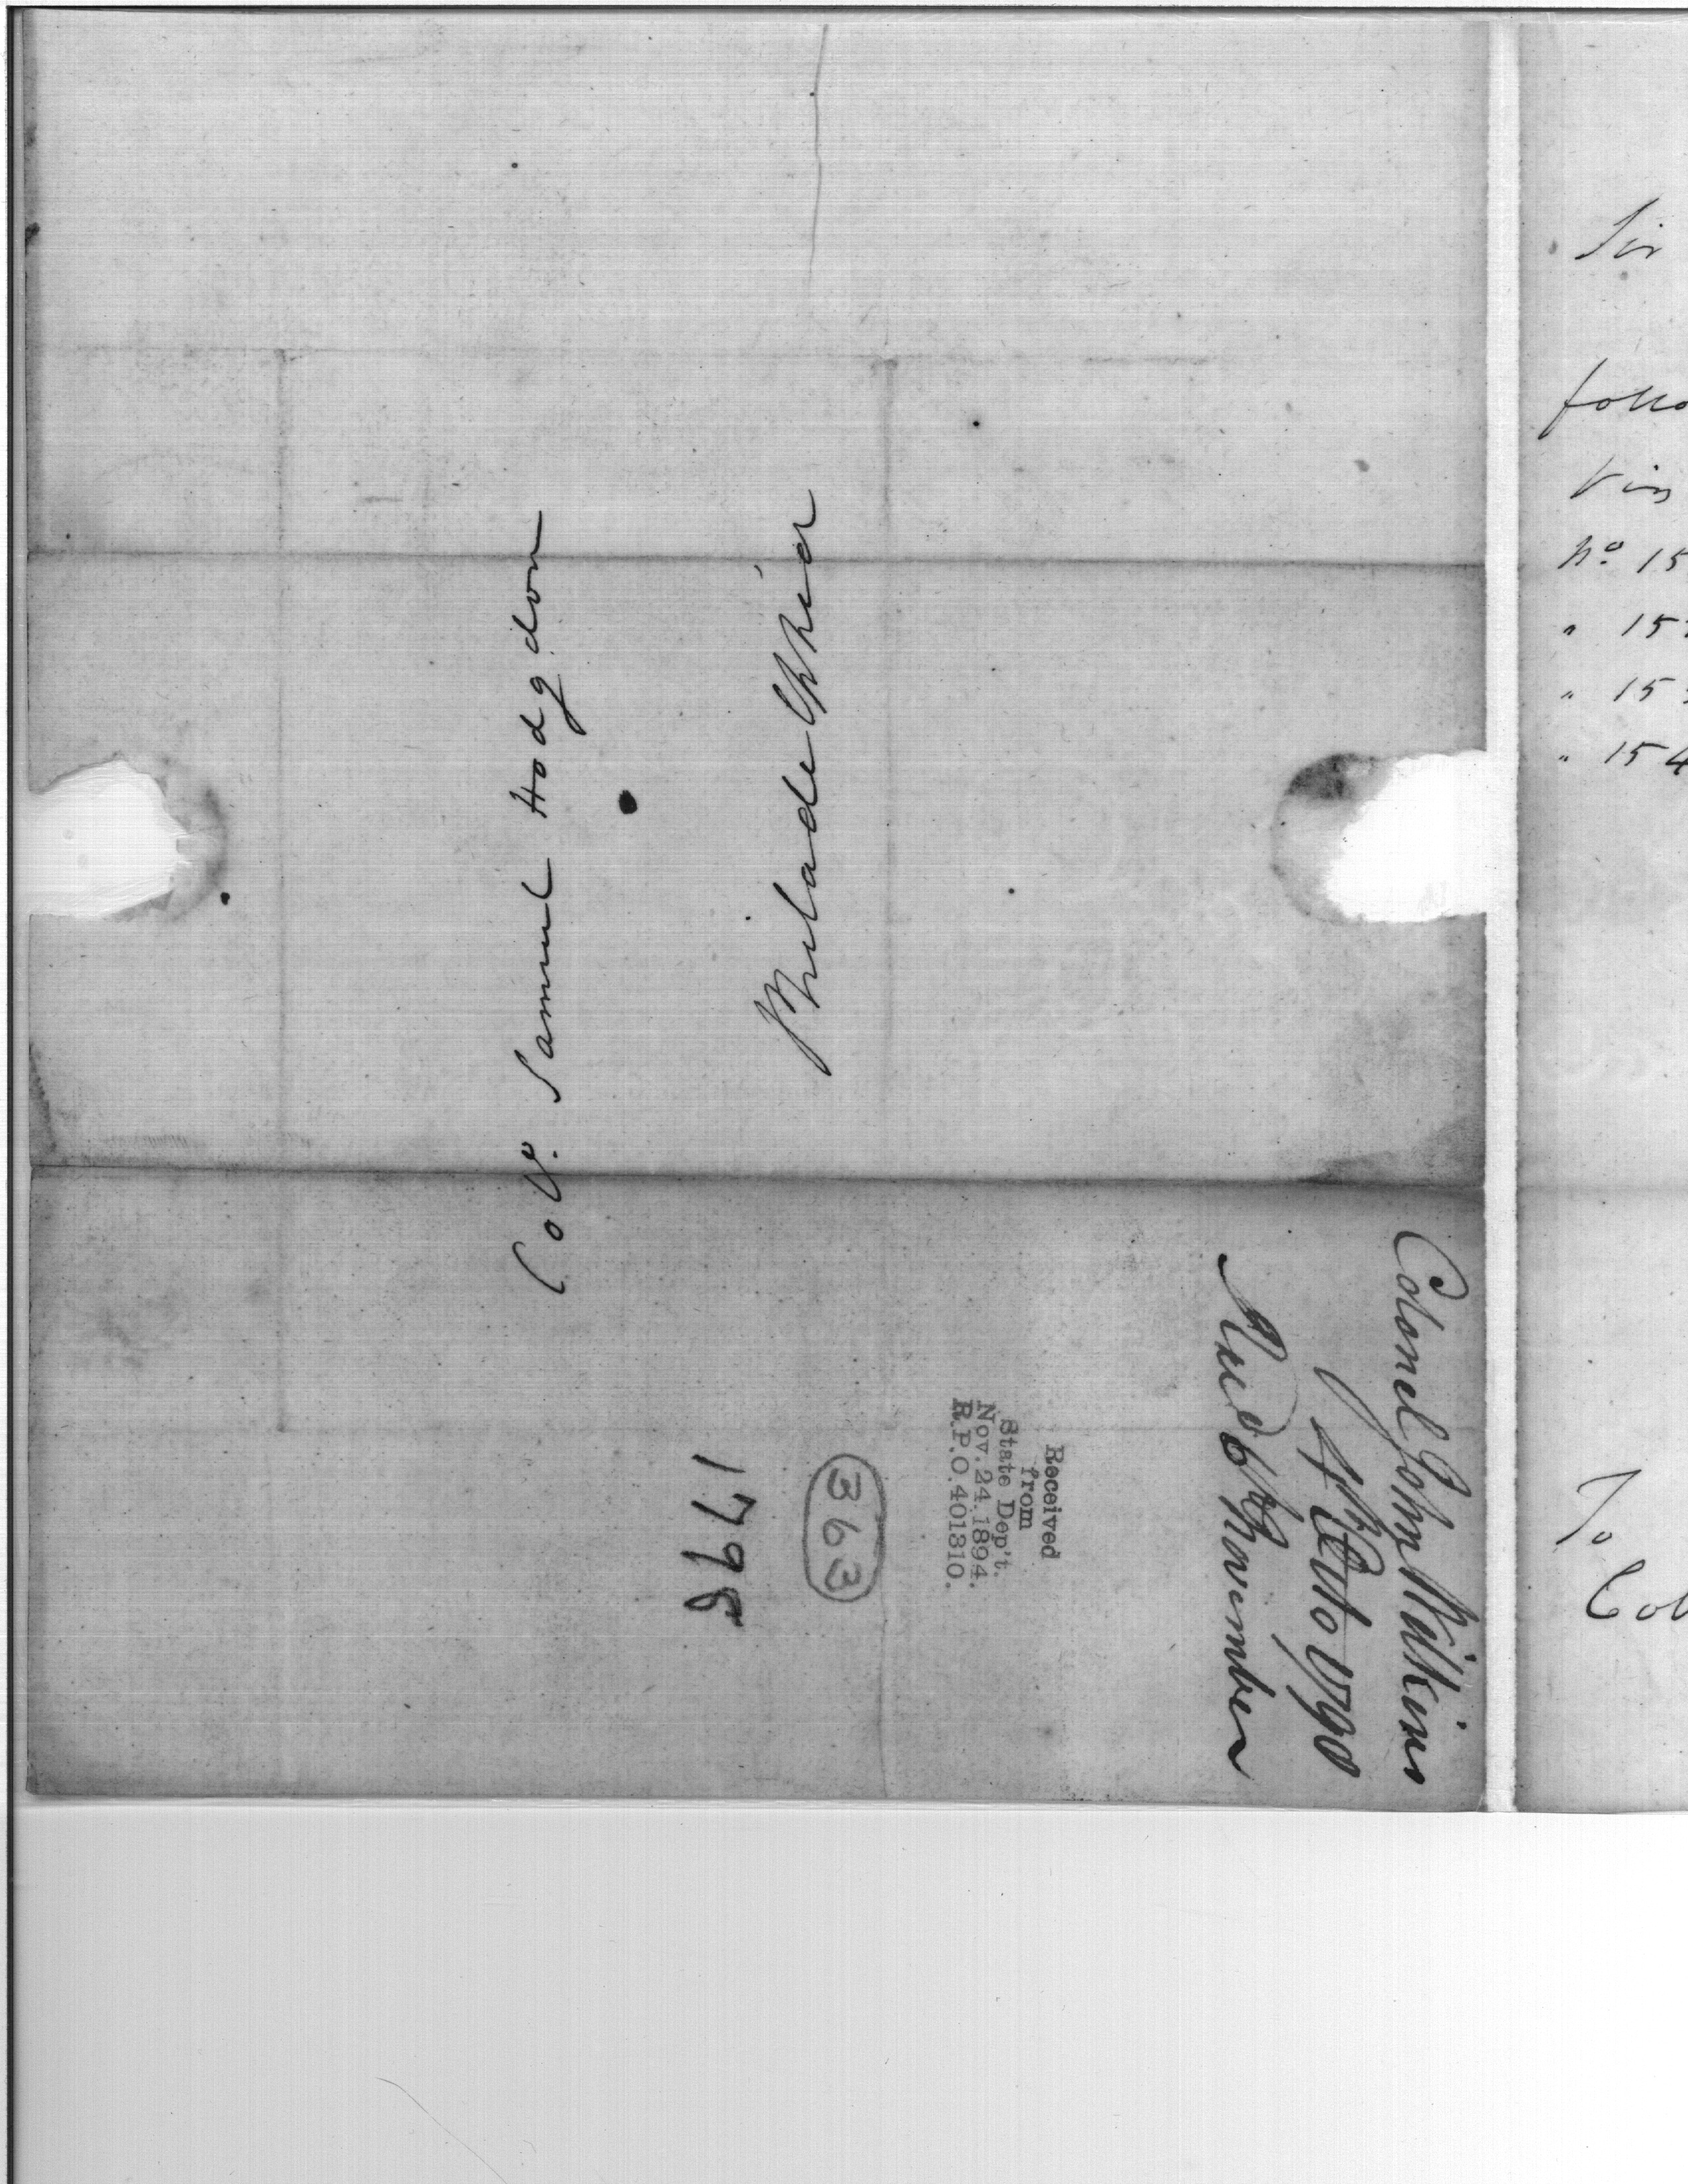 Coll. Samuel Hodgdon
Philadelphia
Colonel John Wilkins
1798
Rec'd 6th November
Received
from
State Dep't.
Nov. 24. 1894.
R.P.O. 401310.
363
1798
Sir
follo
Viz
No 15
" 15
" 15
" 154
To
Coll